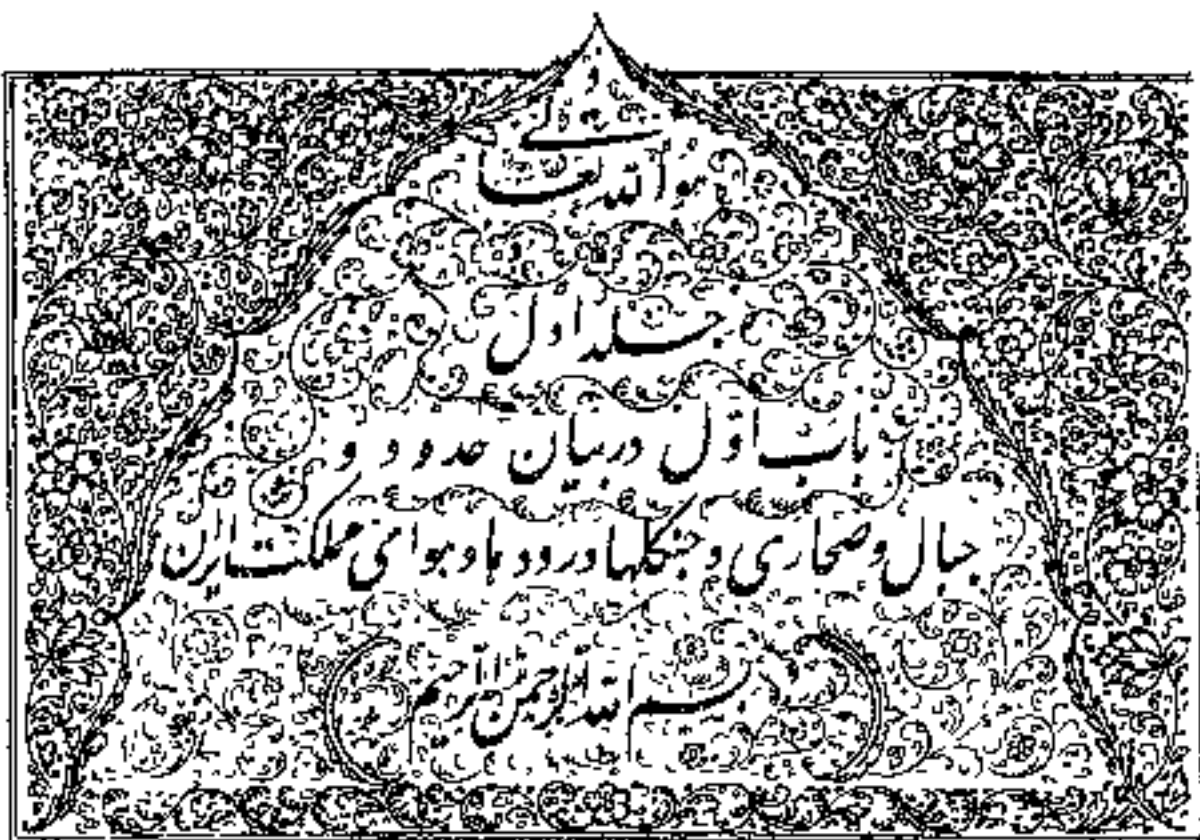 هو الله تعالی
جلد اول
باب اوّل در بیان حدود و
جبال و صحاری و جنکلها و رودها و هوای مملکت ایران
بسم الله الرحمن الرحیم